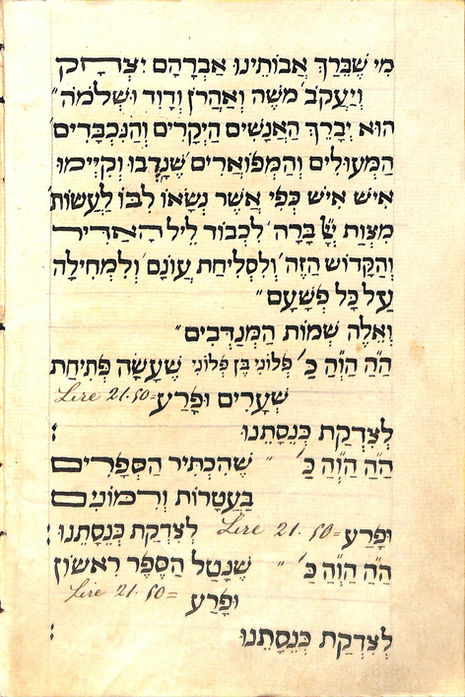 מִי שֶׁבֵּרַךְ אֲבוֹתֵינוּ אַבְרָהָם יִצְחָק
וְיַעֲקֹב מֹשֶׁה וְאַהֲרֹן וְדָוִד וּשְׁלֹמֹה״
הוּא יְבָרֵךְ הָאֲנָשִׁים הַיְקָרִים וְהַנִּכְבָּדִים
הַמְּעוּלִים וְהַמְּפוֹאָרִים שֶׁנָּדְבוּ וְקִיְּימוּ
אִישׁ אִישׁ כְּפִי אֲשֶׁר נְשָׂאוֹ לִבּוֹ לַעֲשׂוֹת
מִצְוֹת בָּרָה לִכְבוֹד לֵיל הָאַדִּיר
וְהַקָּדוֹשׁ הַזֶּה וְלִסְלִיחַת עֲוֹנָם וְלִמְחִילָה
עַל כָּל פִּשְׁעָם״
וְאֵלֶּה שְׁמוֹת הַמְנַדְּבִים״
הָ״הָ הַוָ״הַ כַּ׳ פְּלוֹנִי בֶּן פְּלוֹנִי שֶׁעָשָׂה פְּתִיחַת
שְׁעָרִים וּפָרַע Lire 21.50=
לְצִדְקַת כְּנֵסָתֵנוּ :
הָ״הָ הַוָ״הַ כַּ׳ ״ שֶׁהִכְתִּיר הַסְּפָרִים
בַּעֲטָרוֹת וְרִמּוֹנִים
וּפָרַע Lire 21.50= לְצִדְקַת כְּנֵסָתֵנוּ :
הָ״הָ הַוָ״הַ כַּ׳ ״ שֶׁנָּטַל הַסֵּפֶר רִאשׁוֹן
וּפָרַע Lire 21.50=
לְצִדְקַת כְּנֵסָתֵנוּ :